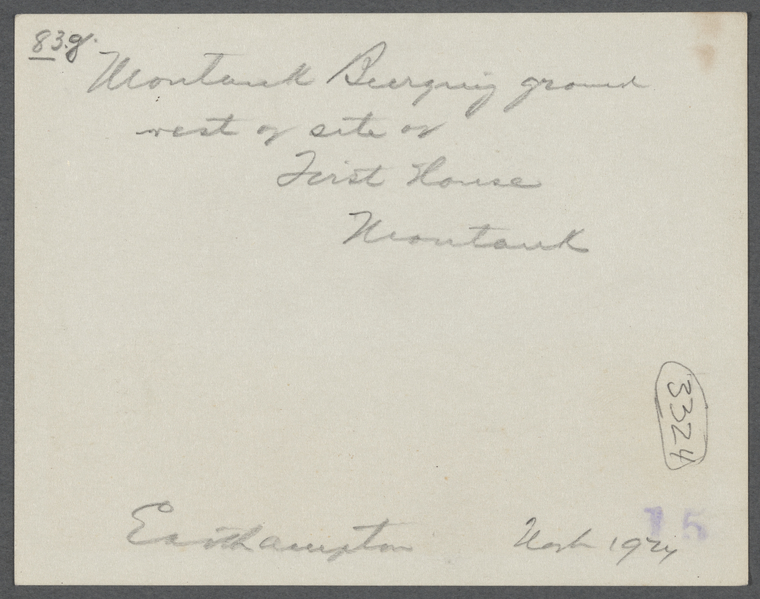 83.g.
Montauk Burying ground
west of site of
First House
Montauk
3324
15
Easthampton 1924